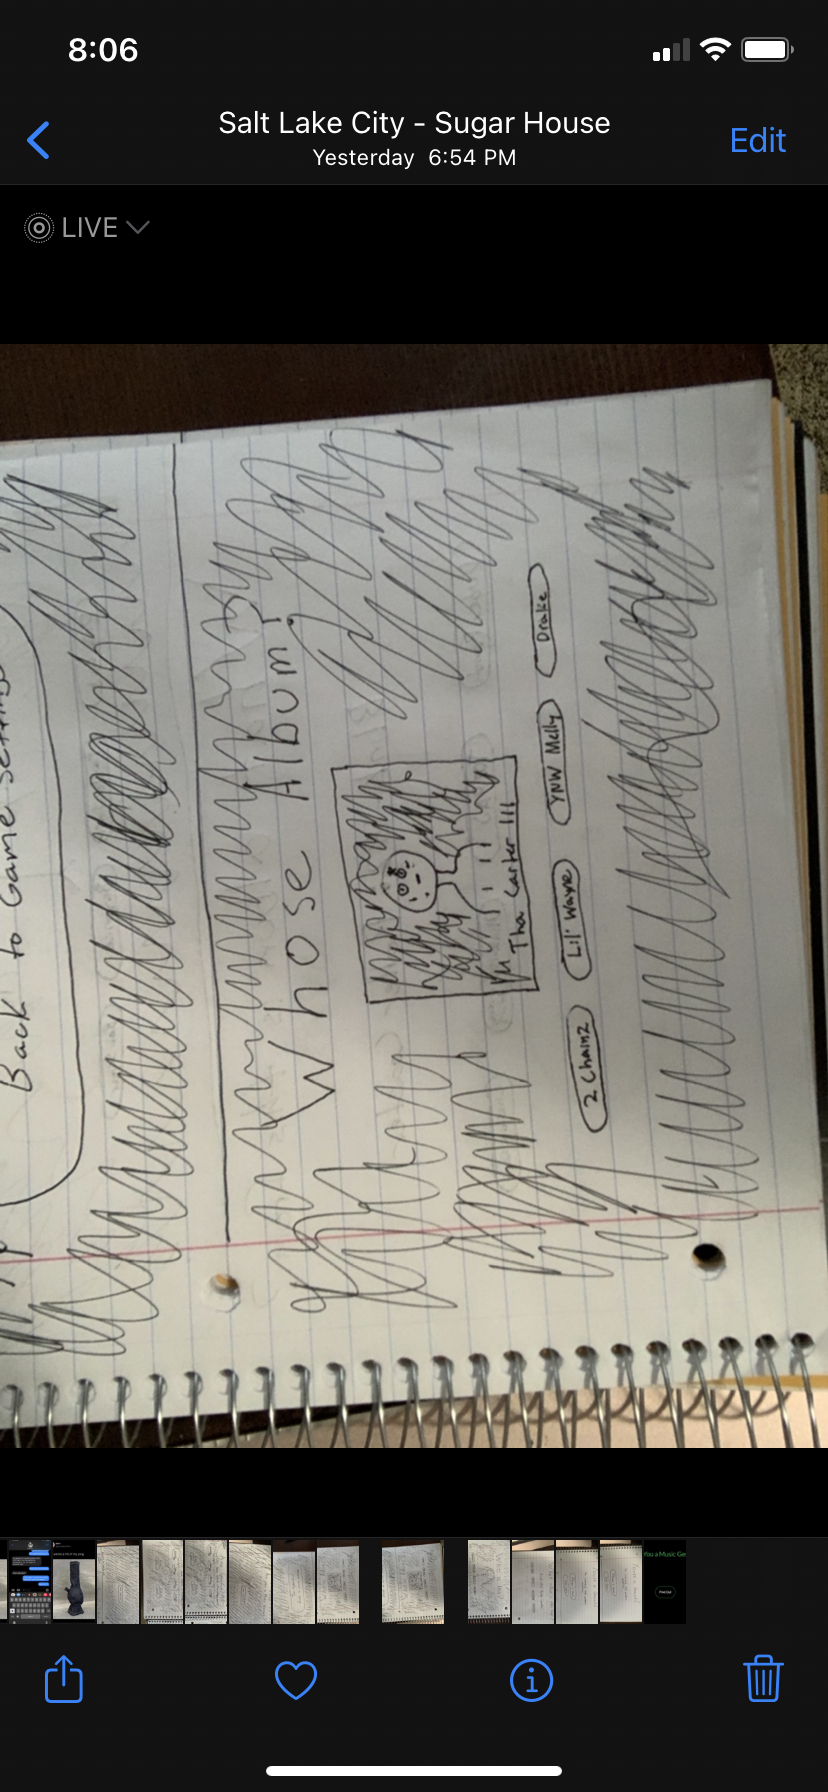 8:06
Salt Lake City - Sugar House
Yesterday 6:54 PM
Edit
LIVE
Back to Game settings
Whose Album?
Tha Carter III
2 Chainz
Lil' Wayne
YNW Melly
Drake
You a Music Ge